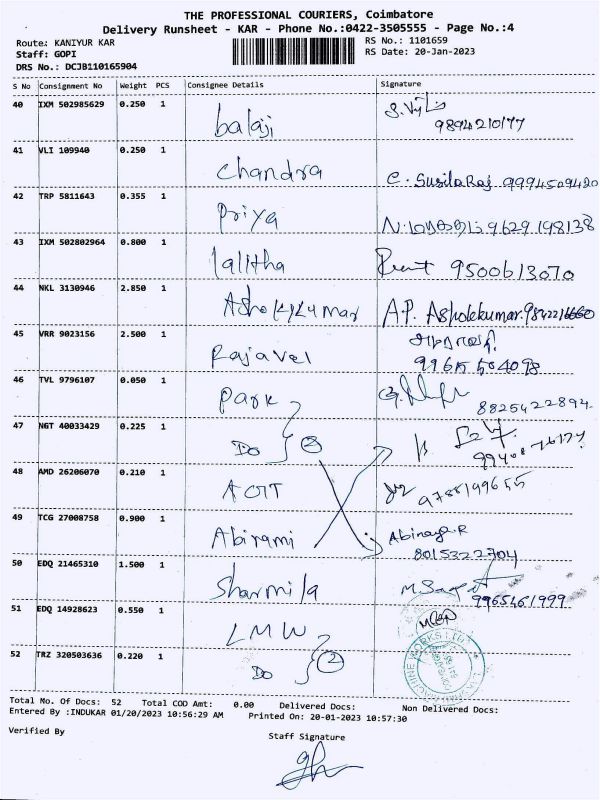 THE PROFESSIONAL COURIERS, Coimbatore
Delivery Runsheet - KAR - Phone No.:0422-3505555 - Page No.:4
Route: KANIYUR KAR
RS No.: 1101659
Staff: GOPI
RS Date: 20-Jan-2023
DRS No.: DCJB110165904
S No Consignment No Weight PCS Consignee Details Signature
40 IXM 502985629 0.250 1 balaji
41 VLI 109940 0.250 1 Chandra C. SusilaRaj 9994509420
42 TRP 5811643 0.355 1 Priya 9629 198138
43 IXM 502802964 0.800 1 lalitha 9500613070
44 NKL 3130946 2.850 1 Ashokkumar A.P. Ashokkumar
45 VRR 9023156 2.500 1 Rajavel
46 TVL 9796107 0.050 1 Park 8825422894
47 NGT 40033429 0.225 1 Do 2
48 AMD 26206070 0.210 1
49 TCG 27008758 0.900 1 Abirami Abinaya.R
8015322704
50 EDQ 21465310 1.500 1 Sharmila
9965461999
51 EDQ 14928623 0.550 1 LMW
52 TRZ 320503636 0.220 1 Do 2
Total Mo. Of Docs: 52 Total COD Amt: 0.00 Delivered Docs: Non Delivered Docs:
Entered By :INDUKAR 01/20/2023 10:56:29 AM Printed On: 20-01-2023 10:57:30
Verified By
Staff Signature